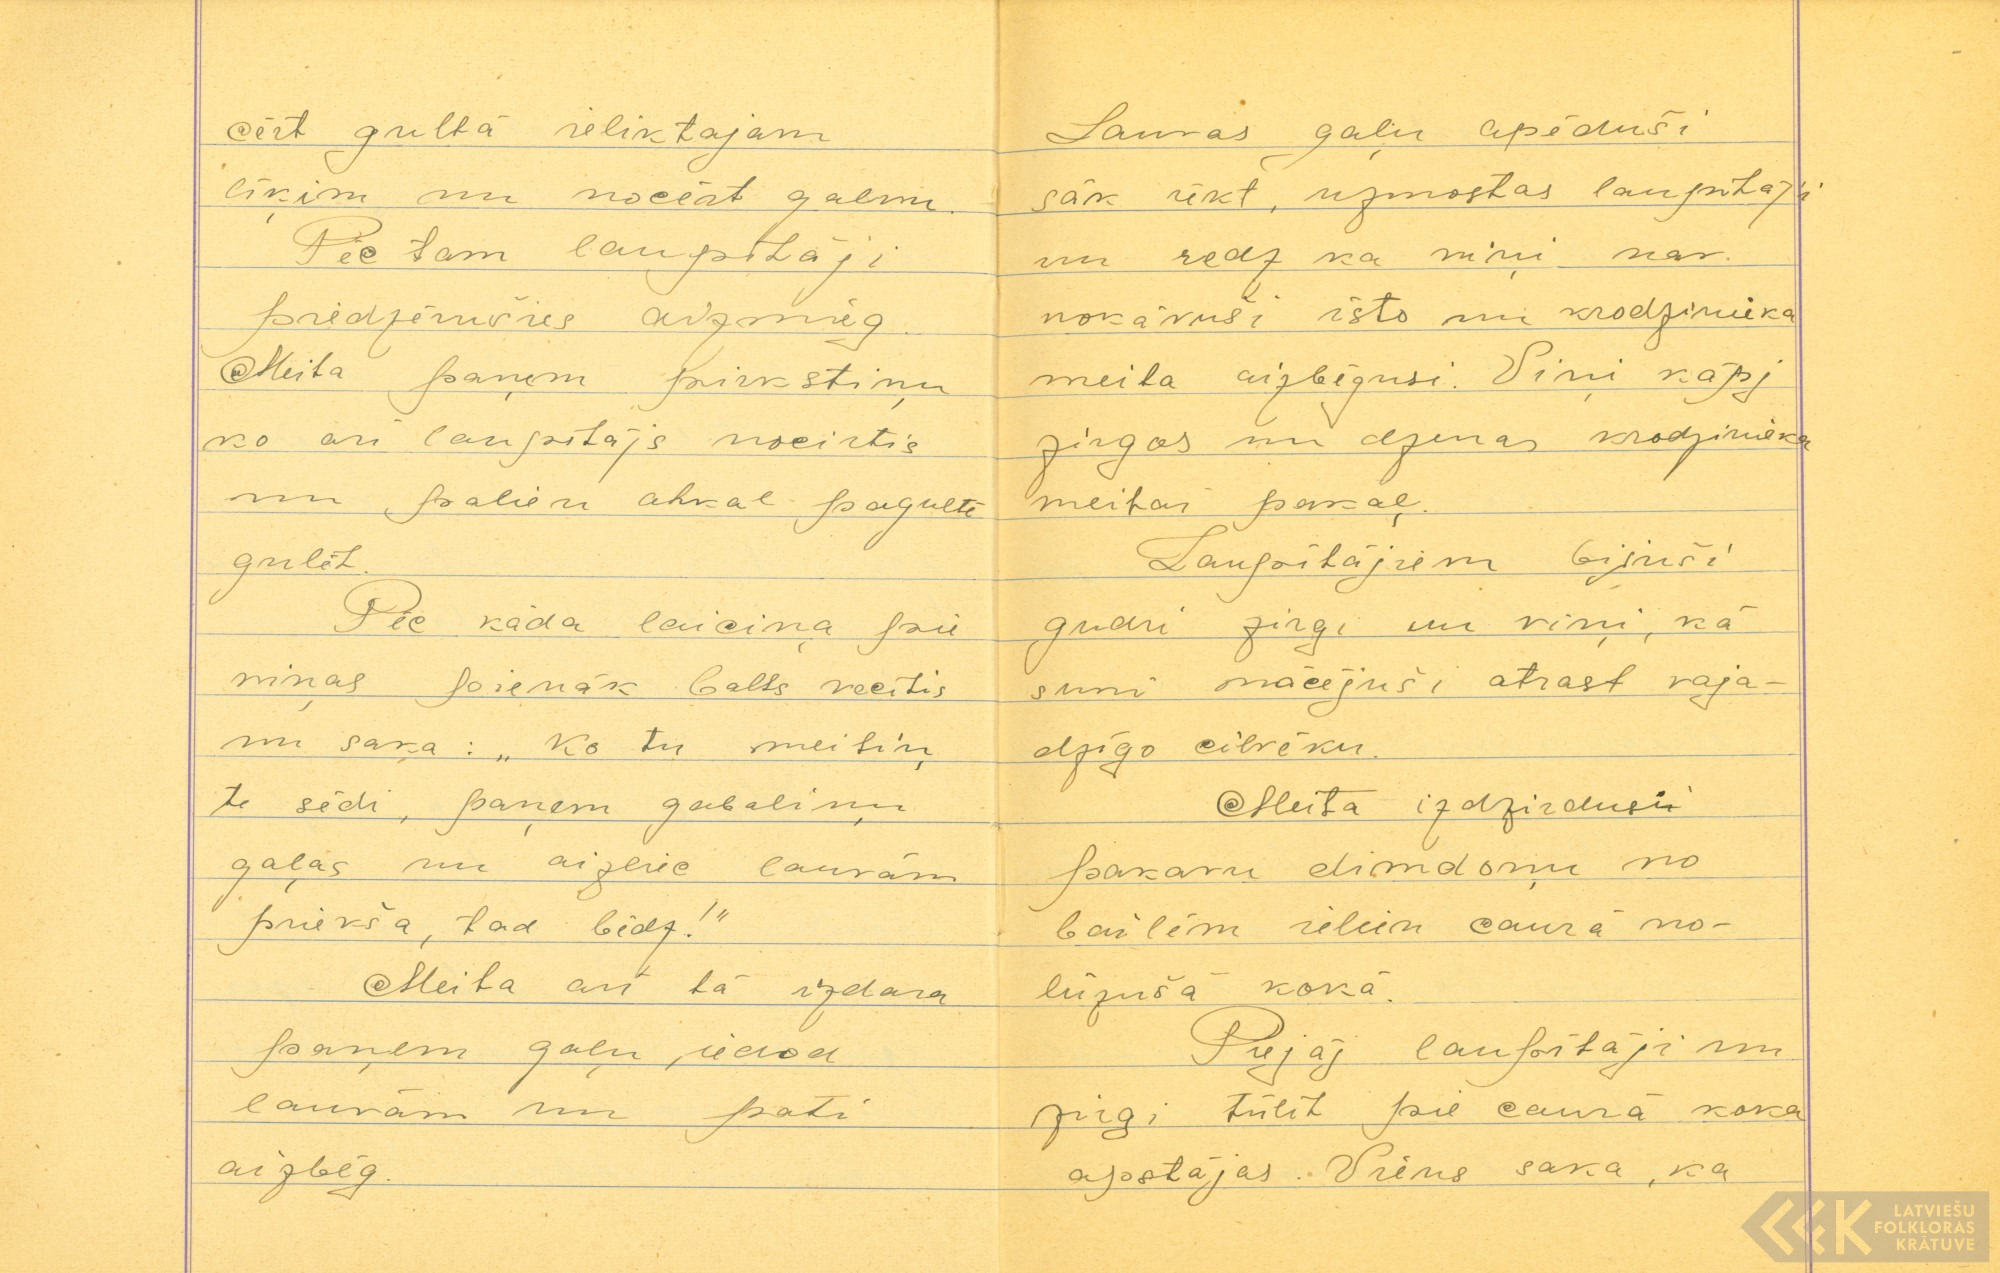 cērt gultā ieliktajam
līķim un nocērt galvu.
Pēc tam laupītāji
piedzērušies aizmieg.
Meita paņem pirkstiņu
ko arī laupītājs nocirtis
un palien atkal pagultē
gulēt.
Pēc kāda laiciņa pie
viņas pienāk balts vecītis
un saka: „Ko tu meitiņ
te sēdi, paņem gabaliņu
gaļas un aizliec lauvām
priekša, tad bēdz!"
Meita arī tā izdara
paņem gaļu, iedod
lauvām un pati
aizbēg.
Lauvas gaļu apēduši
sāk rēkt, uzmostas laupītāji
un redz ka viņi nav.
nokāvuši īsto un krodzinieka
meita aizbēgusi. Viņi kāpj
zirgos un dzenas krodzinieka
meitai pakaļ.
Laupītājiem bijuši
gudri zirgi un viņi, kā
suņi mācējuši atrast vaja-
dzīgo cilvēku.
Meita izdzirdusi
pakavu dimdoņu no
bailēm ielien caurā no-
lūzušā kokā.
Piejāj laupītāji un
zirgi tūlīt pie caurā koka
apstājas. Viens saka, ka
LATVIEŠU
FOLKLORAS
KRĀTUVE